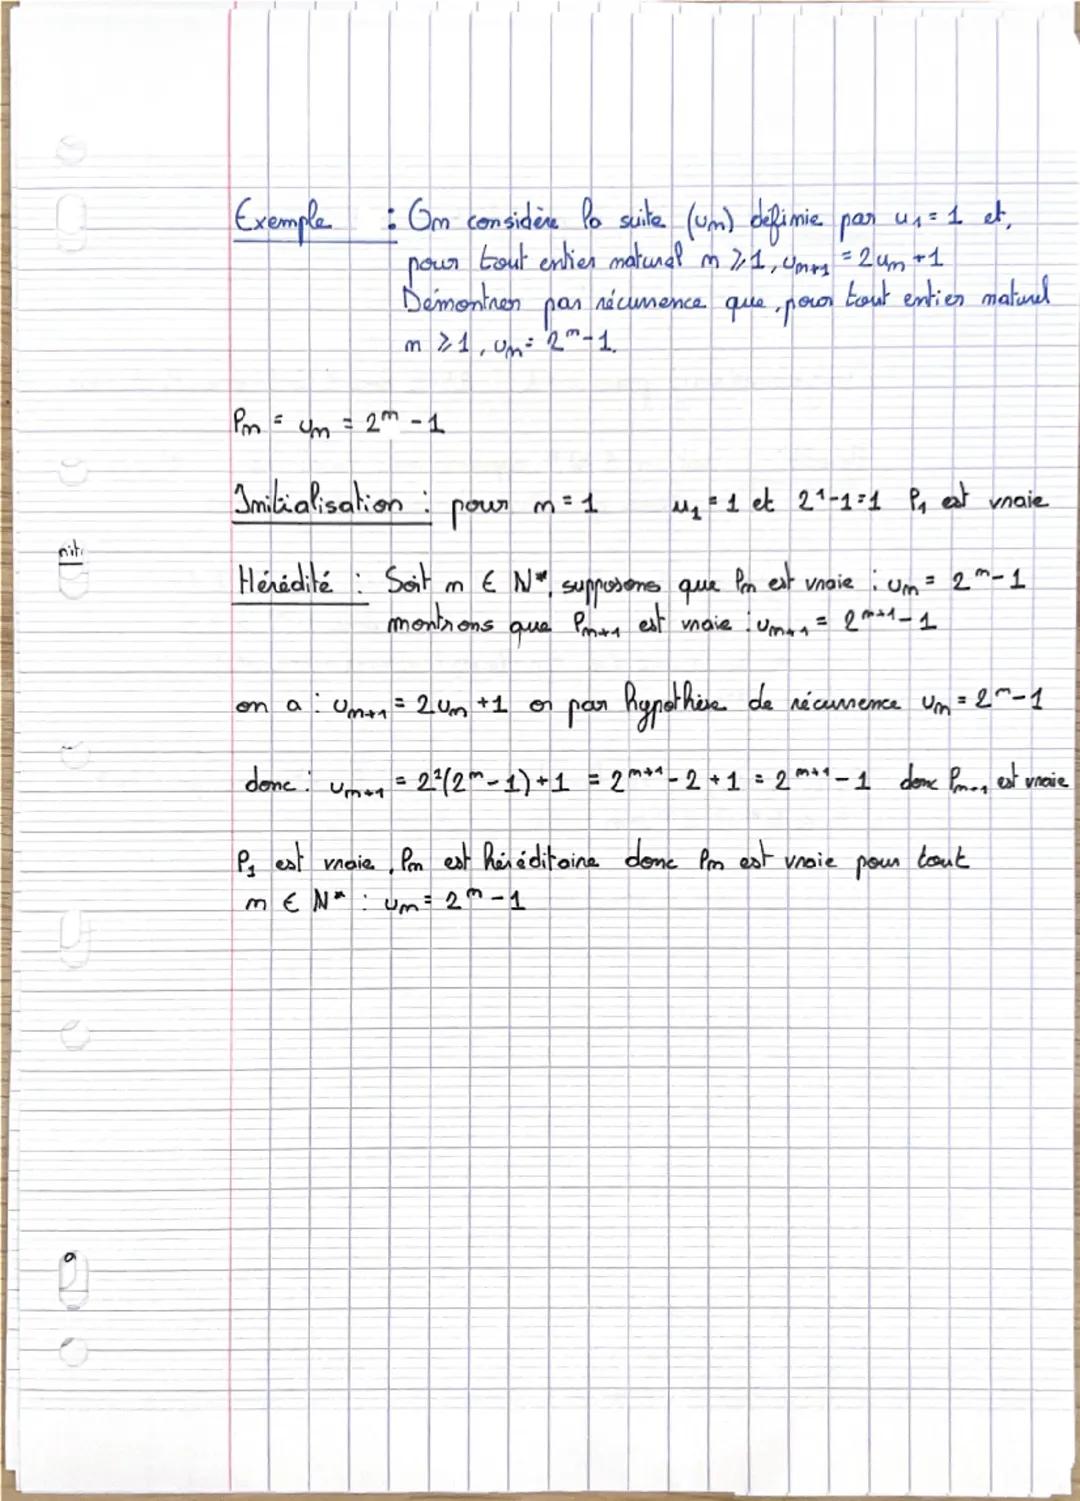 Exemple : On considère la suite (un) définie par u₁ = 1 et,
pour tout entier naturel n ⩾ 1, un+1 = 2un + 1
Démontrer par récurrence que, pour tout entier naturel
n ⩾ 1, un = 2ⁿ - 1.
Pn = un = 2ⁿ - 1
Initialisation : pour n = 1 u₁ = 1 et 2¹-1=1 P₁ est vraie
nit
Hérédité : Soit n ∈ N*, supposons que Pn est vraie : un = 2ⁿ - 1
montrons que Pn+1 est vraie : un+1 = 2ⁿ⁺¹ - 1
on a : un+1 = 2un + 1 or par hypothèse de récurrence un = 2ⁿ - 1
donc : un+1 = 2¹(2ⁿ - 1) + 1 = 2ⁿ⁺¹ - 2 + 1 = 2ⁿ⁺¹ - 1 donc Pn+1 est vraie
P₁ est vraie, Pn est héréditaire donc Pn est vraie pour tout
n ∈ N* : un = 2ⁿ - 1